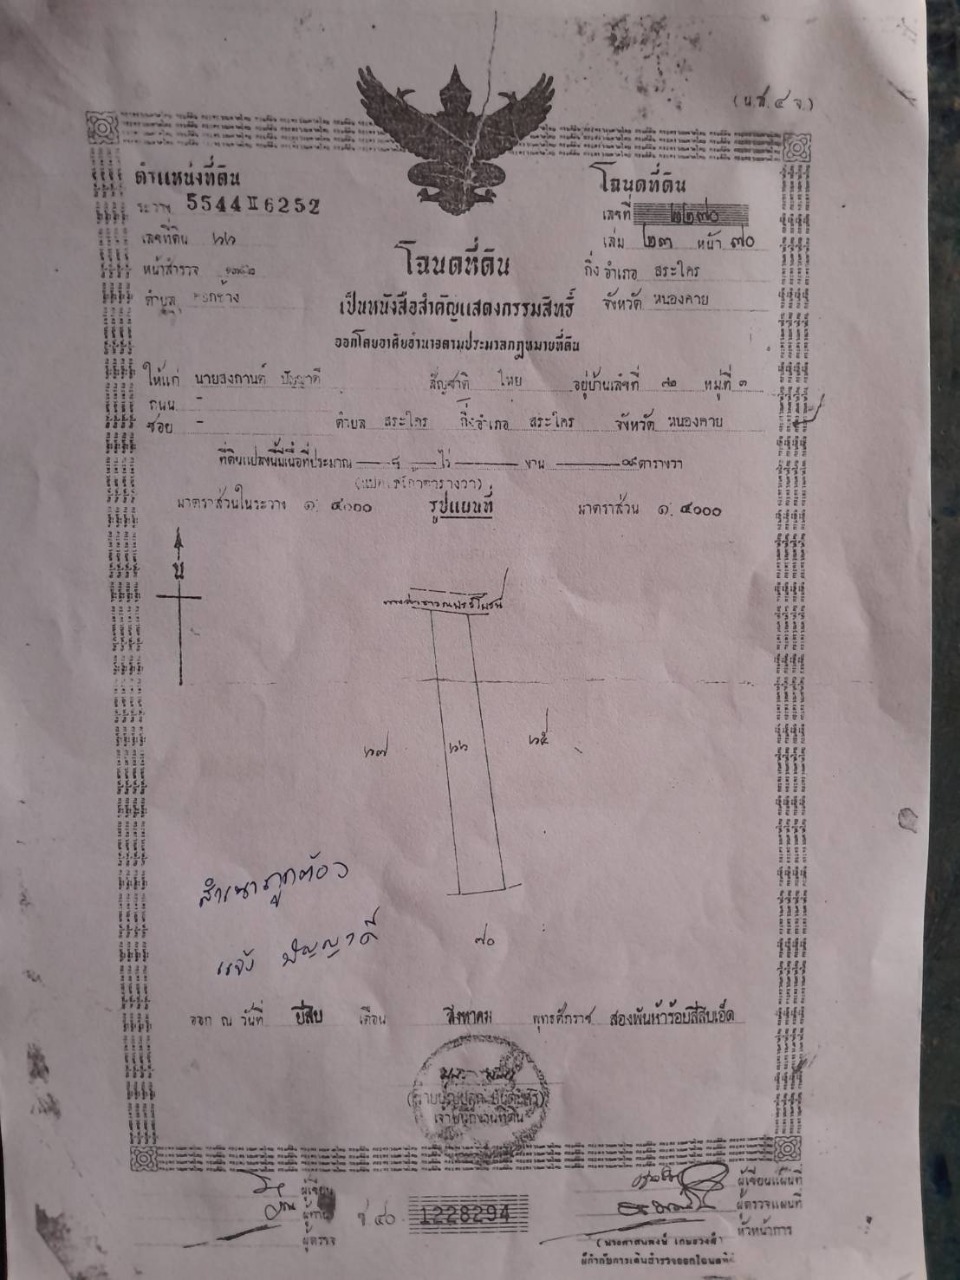 (น.ส. ๔ จ.)
ตำแหน่งที่ดิน
ระวาง 5544 II 6252
เลขที่ดิน ๖๖
หน้าสำรวจ
ตำบล
โฉนดที่ดิน
เลขที่ ๒๒๗๐
เล่ม ๒๓ หน้า ๗๐
กิ่งอำเภอ สระใคร
จังหวัด หนองคาย
โฉนดที่ดิน
เป็นหนังสือสำคัญแสดงกรรมสิทธิ์
ออกโดยอาศัยอำนาจตามประมวลกฎหมายที่ดิน
ให้แก่ นายสงกานต์ ปัญญาดี สัญชาติ ไทย อยู่บ้านเลขที่ ๗๒ หมู่ที่ ๓
ถนน -
ซอย - ตำบล สระใคร กิ่งอำเภอ สระใคร จังหวัด หนองคาย
ที่ดินแปลงนี้มีเนื้อที่ประมาณ ไร่ งาน ตารางวา
มาตราส่วนในระวาง ๑ : ๔๐๐๐ รูปแผนที่ มาตราส่วน ๑ : ๔๐๐๐
น
ทางสาธารณประโยชน์
๖๗ ๖๖ ๖๕
๗๐
สำเนาถูกต้อง
แจ้ง ปัญญาดี
ออก ณ วันที่ ยี่สิบ เดือน สิงหาคม พุทธศักราช สองพันห้าร้อยสี่สิบเอ็ด
เจ้าพนักงานที่ดิน
ผู้เขียน
ผู้ทาน
ผู้ตรวจ
ช ๔๐ 1228294
ผู้เขียนแผนที่
ผู้ตรวจแผนที่
หัวหน้าการ
ผู้กำกับการเดินสำรวจออกโฉนดที่ดิน